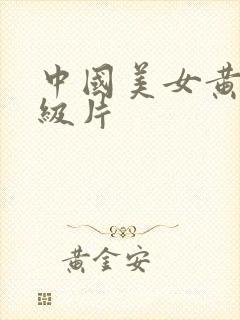 中國美女黃
級片
黃金安